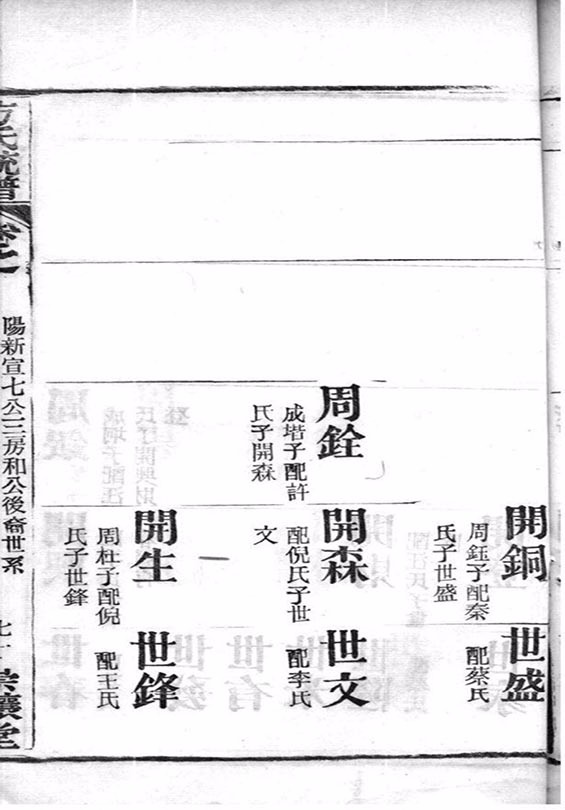 開銅
周鈺子配秦
氏子世盛
世盛
配蔡氏
周銓
成堦子配許
氏子開森
開森
配倪氏子世
文
世文
配李氏
開生
周杜子配倪
氏子世鋒
世鋒
配王氏
方氏統譜
卷之一
陽新宣七公三房和公後裔世系
堂